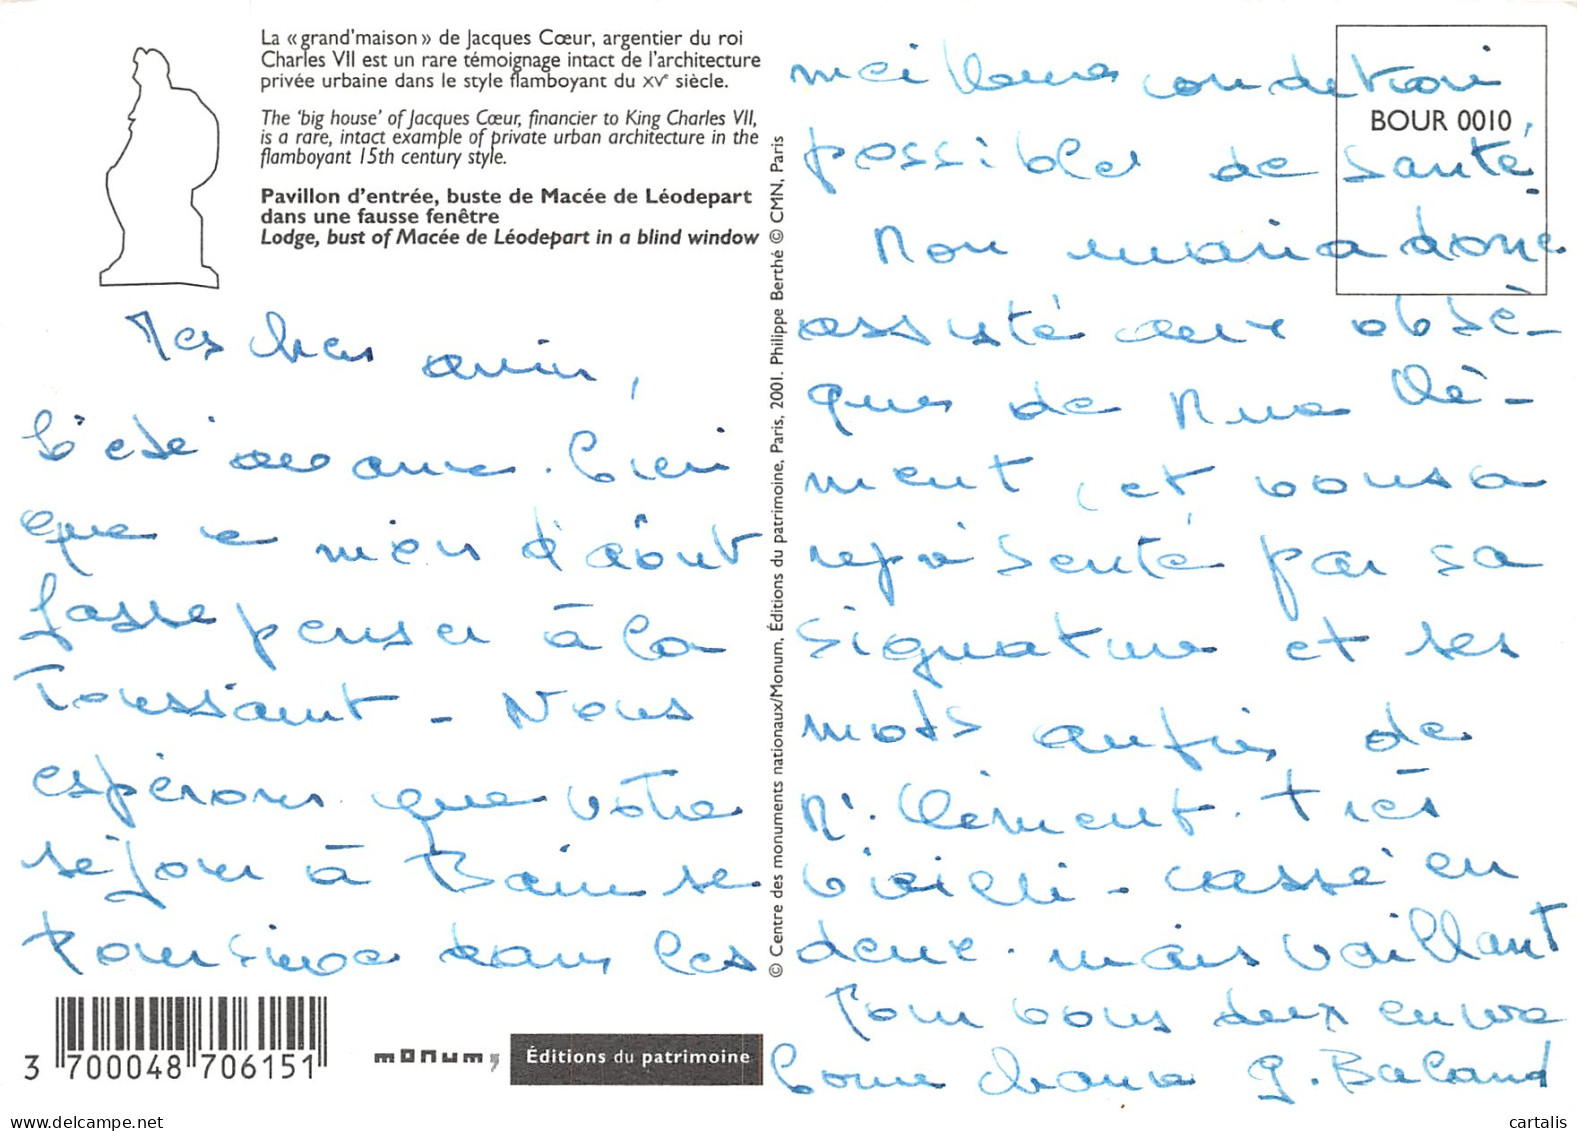 La « grand'maison » de Jacques Cœur, argentier du roi
Charles VII est un rare témoignage intact de l'architecture
privée urbaine dans le style flamboyant du XVe siècle.
The 'big house' of Jacques Cœur, financier to King Charles VII,
is a rare, intact example of private urban architecture in the
flamboyant 15th century style.
Pavillon d'entrée, buste de Macée de Léodepart
dans une fausse fenêtre
Lodge, bust of Macée de Léodepart in a blind window
Mes chers amis,
L'été avance. bien
que ce mois d'août
fasse penser à la
Toussaint - Nous
espérons que votre
séjour à se
poursuive dans les
3 700048 706151
monum,
Éditions du patrimoine
© Centre des monuments nationaux/Monum, Éditions du patrimoine, Paris, 2001. Philippe Berthé © CMN, Paris
BOUR 0010
meilleures conditions
possibles de santé.
Mon mari a donc
assisté aux obsè-
ques de Mme Clé-
ment, et vous a
représenté par sa
signature et ses
mots auprès de
Mr. Clément. Très
vieilli - cassé en
deux. mais vaillant
Pour vous deux encore
bonne chance G. Baland
cartalis